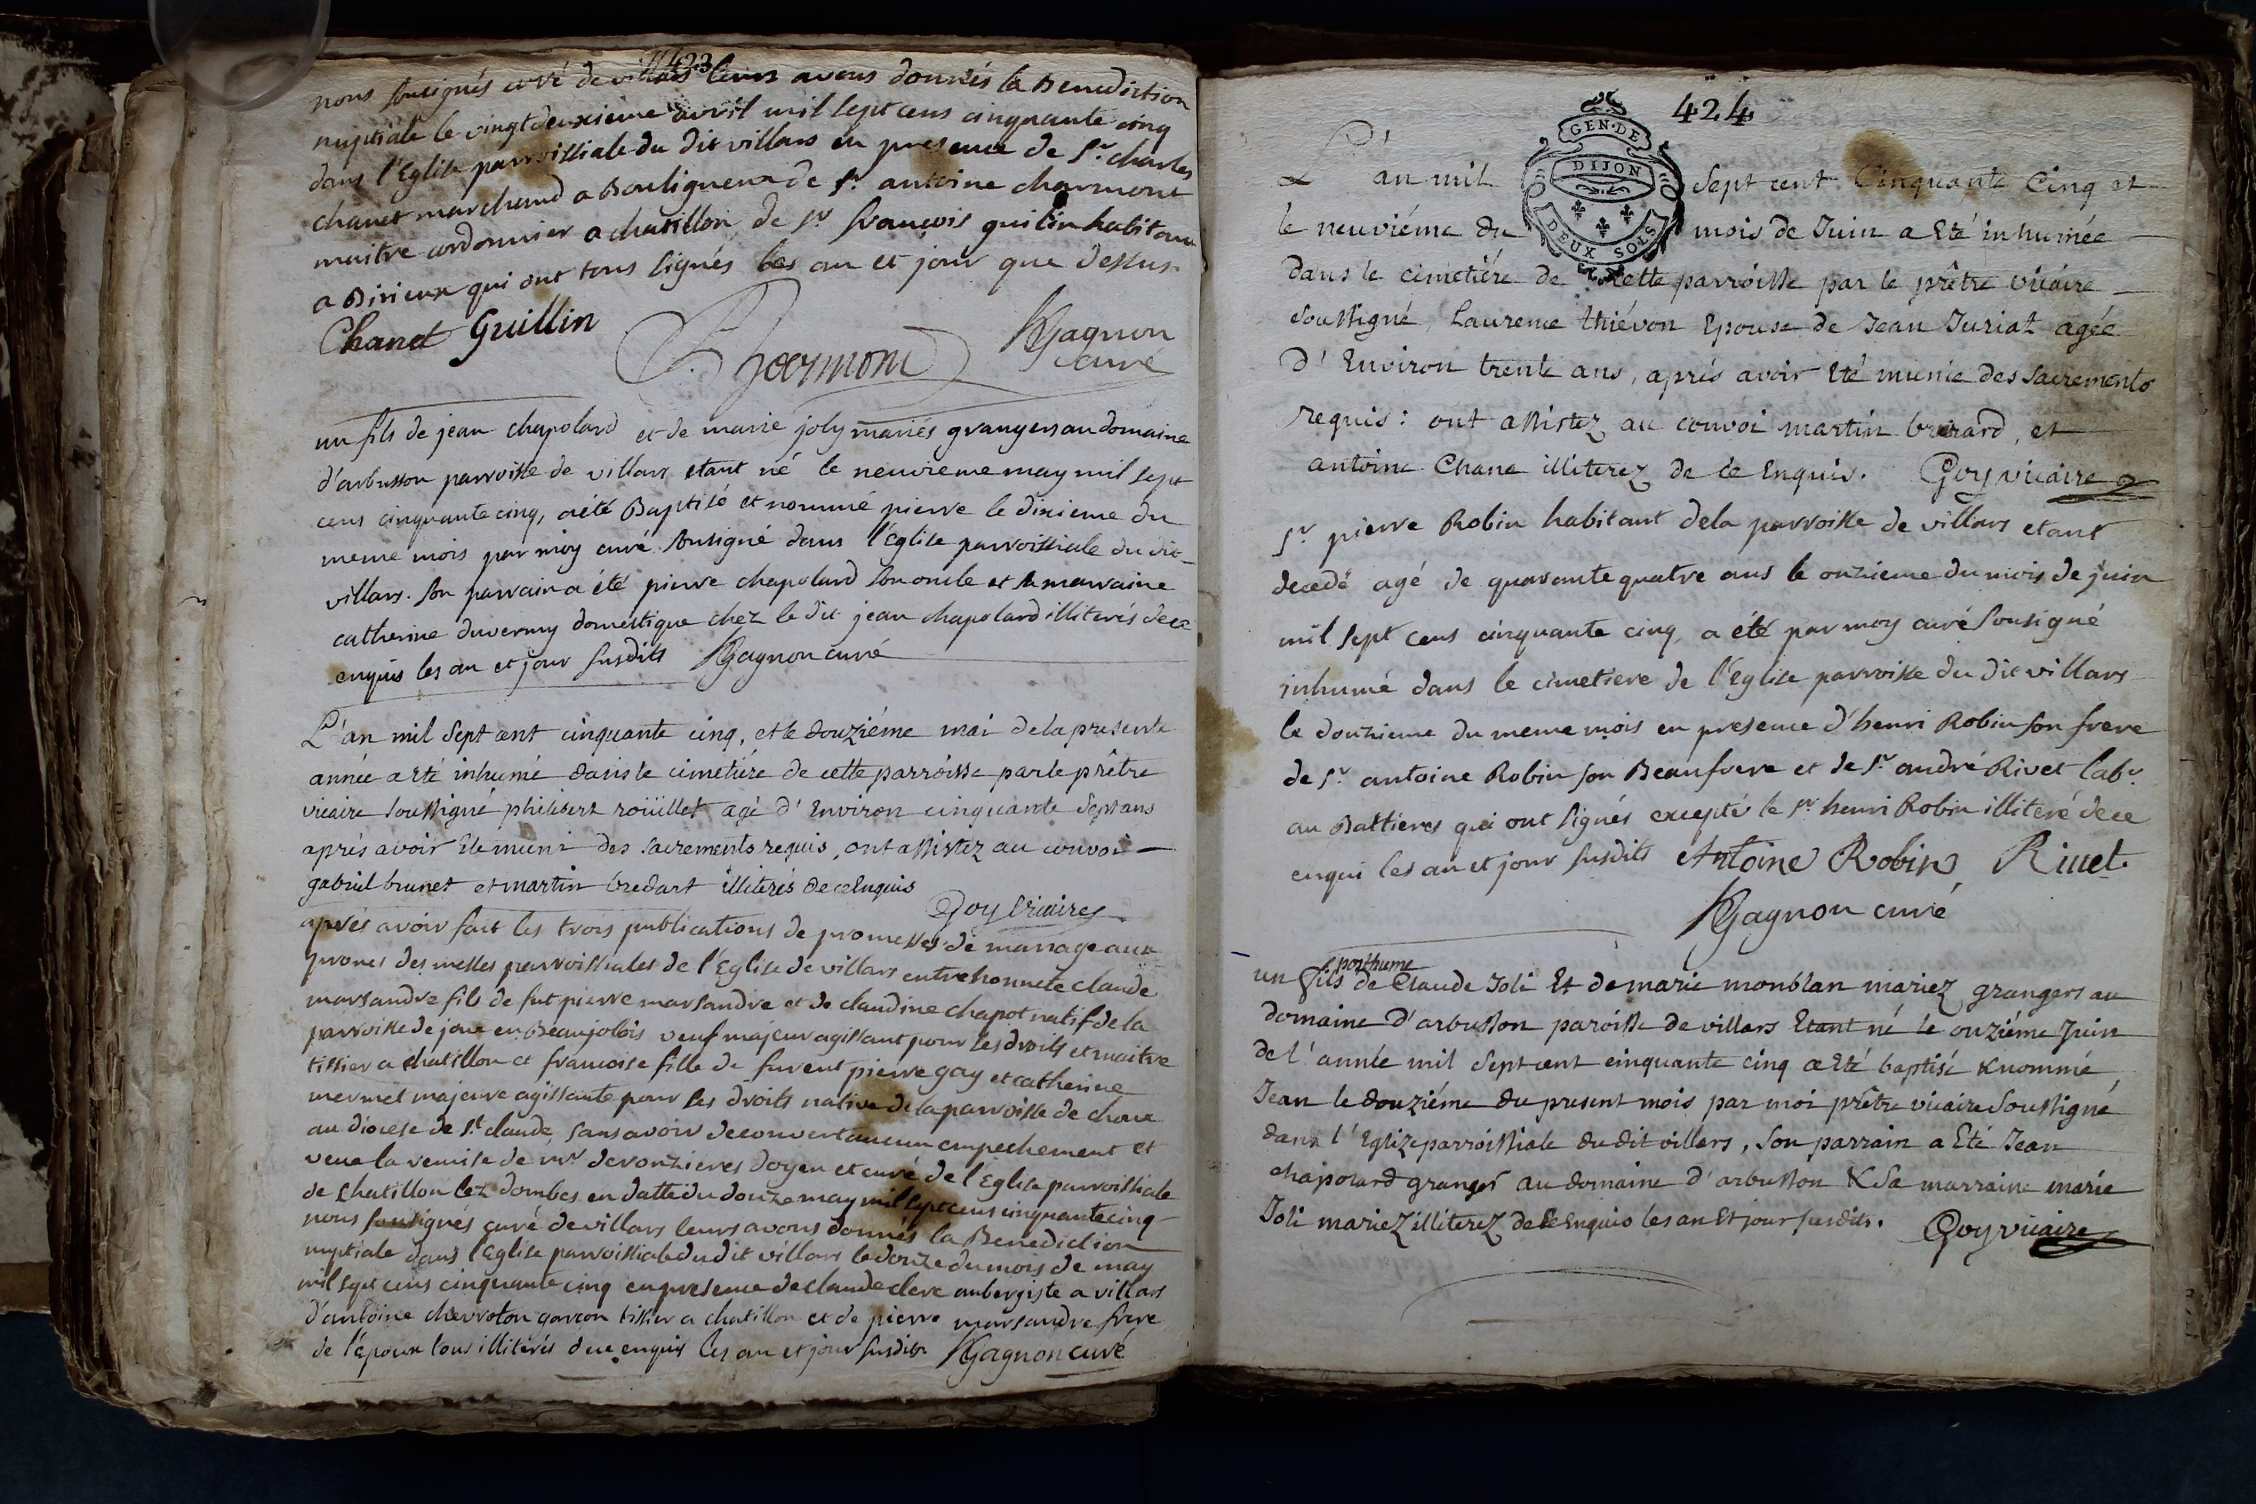 423
nous sousignés curé de villars leurs avons donnés la Benediction
nuptiale le vingtdeuxieme avril mil sept cens cinquante cinq
dans l'Eglise parroissiale du dit villars en presence de Sr. charles
chanet marchand a Bouligneux de Sr. antoine charmont
maitre cordonnier a chatillon de Sr françois guilin habitant
a Birieux qui ont tous signés les an et jour que dessus.
Chanet Guillin
Charmont
Gagnon
curé
un fils de jean chapolard et de marie joly mariés grangers au domaine
d'arbusson parroisse de villars etant né le neuvieme may mil sept
cens cinquante cinq, a été Baptisé et nommé pierre le dixieme du
meme mois par moy curé sousigné dans l'Eglise parroissiale du dit
villars. son parrain a été pierre chapolard son oncle et sa marraine
catherine duverny domestique chez le dit jean chapolard illiterés de ce
enquis les an et jour susdits Gagnon curé
L'an mil sept cent cinquante cinq, et le douziéme mai de la presente
année a eté inhumé dans le cimetiére de cette parroisse par le prêtre
vicaire soussigné philibert roüillet agé d'Environ cinquante sept ans
aprés avoir Eté muni des sacrements requis, ont assistez au convoi
gabriel brunet et martin bredart illiterés de ce Enquis
Goy vicaire
aprés avoir fait les trois publications de promesses de mariage aux
prones des messes parroissiales de l'Eglise de villars entre honnete claude
marsandre fils de fut pierre marsandre et de claudine chapot natif de la
parroisse de joux en Beaujolois veuf majeur agissant pour ses droits et maitre
tissier a chatillon et francoise fille de furent pierre gay et catherine
mermet majeure agissante pour ses droits native de la parroisse de choux
au diocese de St. claude, sans avoir decouvert aucun empechement et
veue la remise de mr. deronzieres doyen et curé de l'Eglise parroissiale
de chatillon lez dombes en datte du douze may mil sept cens cinquante cinq
nous sousignés curé de villars leurs avons donnés la Benediction
nuptiale dans l'Eglise parroissiale du dit villars le douze du mois de may
mil sept cens cinquante cinq en presence de claude clerc aubergiste a villars
d'antoine chevroton garcon tissier a chatillon et de pierre marsandre frere
de l'époux tous illiterés de ce enquis les an et jour susdits Gagnon curé
424
GEN. DE
DIJON
DEUX SOLS
L'an mil sept cent Cinquante Cinq et
le neuviéme du mois de Juin a Eté inhumée
dans le cimetiére de cette parroisse par le prêtre vicaire
soussigné, Laurence thiévon Epouse de Jean Juriat agée
d'Environ trente ans, aprés avoir Eté munie des sacrements
requis: ont assistez au convoi martin brirard, et
antoine Chane illiterez de ce Enquis. Goy vicaire
Sr pierre Robin habitant de la parroisse de villars etant
decedé agé de quarante quatre ans le onzieme du mois de juin
mil sept cens cinquante cinq, a été par moy curé sousigné
inhumé dans le cimetiere de l'Eglise parroisse du dit villars
le douzieme du meme mois en presence d'henri Robin son frere
de Sr antoine Robin son Beaufrere et de Sr andré Rivet labr.
au Battieres qui ont signés excepté le Sr henri Robin illiteré de ce
enqui les an et jour susdits Antoine Robin Rivet
Gagnon curé
posthume
un fils de Claude Joli Et de marie monblan mariez grangers au
domaine d'arbusson paroisse de villars Etant né le onziéme Juin
de l'année mil sept cent cinquante cinq a Eté baptisé & nommé
Jean le douziéme du present mois par moi prêtre vicaire soussigné
dans l'Eglize parroissiale du dit villars, son parrain a Eté Jean
chapolard granger au domaine d'arbusson & sa marraine marie
Joli mariez illiterez de ce Enquis les an Et jour susdits. Goy vicaire